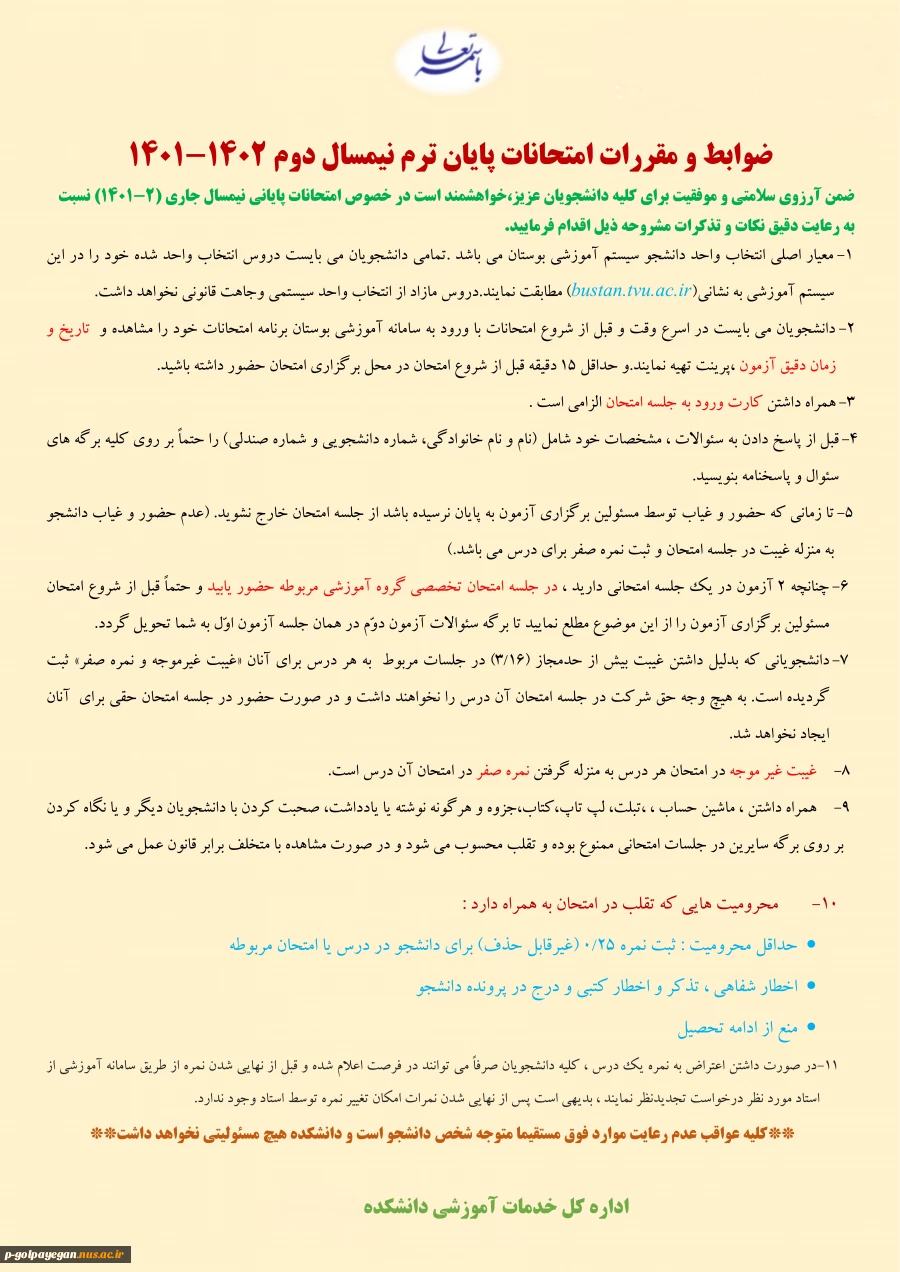 باسمه تعالی
ضوابط و مقررات امتحانات پایان ترم نیمسال دوم ۱۴۰۲-۱۴۰۱
ضمن آرزوی سلامتی و موفقیت برای کلیه دانشجویان عزیز،خواهشمند است در خصوص امتحانات پایانی نیمسال جاری (۲-۱۴۰۱) نسبت
به رعایت دقیق نکات و تذکرات مشروحه ذیل اقدام فرمایید.
۱- معیار اصلی انتخاب واحد دانشجو سیستم آموزشی بوستان می باشد .تمامی دانشجویان می بایست دروس انتخاب واحد شده خود را در این
سیستم آموزشی به نشانی(bustan.tvu.ac.ir) مطابقت نمایند.دروس مازاد از انتخاب واحد سیستمی وجاهت قانونی نخواهد داشت.
۲- دانشجویان می بایست در اسرع وقت و قبل از شروع امتحانات با ورود به سامانه آموزشی بوستان برنامه امتحانات خود را مشاهده و تاریخ و
زمان دقیق آزمون ،پرینت تهیه نمایند.و حداقل ۱۵ دقیقه قبل از شروع امتحان در محل برگزاری امتحان حضور داشته باشید.
۳- همراه داشتن کارت ورود به جلسه امتحان الزامی است .
۴- قبل از پاسخ دادن به سئوالات ، مشخصات خود شامل (نام و نام خانوادگی، شماره دانشجویی و شماره صندلی) را حتماً بر روی کلیه برگه های
سئوال و پاسخنامه بنویسید.
۵- تا زمانی که حضور و غیاب توسط مسئولین برگزاری آزمون به پایان نرسیده باشد از جلسه امتحان خارج نشوید. (عدم حضور و غیاب دانشجو
به منزله غیبت در جلسه امتحان و ثبت نمره صفر برای درس می باشد.)
۶- چنانچه ۲ آزمون در یک جلسه امتحانی دارید ، در جلسه امتحان تخصصی گروه آموزشی مربوطه حضور یابید و حتماً قبل از شروع امتحان
مسئولین برگزاری آزمون را از این موضوع مطلع نمایید تا برگه سئوالات آزمون دوّم در همان جلسه آزمون اوّل به شما تحویل گردد.
۷- دانشجویانی که بدلیل داشتن غیبت بیش از حدمجاز (۳/۱۶) در جلسات مربوط به هر درس برای آنان «غیبت غیرموجه و نمره صفر» ثبت
گردیده است. به هیچ وجه حق شرکت در جلسه امتحان آن درس را نخواهند داشت و در صورت حضور در جلسه امتحان حقی برای آنان
ایجاد نخواهد شد.
۸- غیبت غیر موجه در امتحان هر درس به منزله گرفتن نمره صفر در امتحان آن درس است.
۹- همراه داشتن ، ماشین حساب ، ،تبلت، لپ تاپ،کتاب،جزوه و هرگونه نوشته یا یادداشت، صحبت کردن با دانشجویان دیگر و یا نگاه کردن
بر روی برگه سایرین در جلسات امتحانی ممنوع بوده و تقلب محسوب می شود و در صورت مشاهده با متخلف برابر قانون عمل می شود.
۱۰- محرومیت هایی که تقلب در امتحان به همراه دارد :
• حداقل محرومیت : ثبت نمره ۰/۲۵ (غیرقابل حذف) برای دانشجو در درس یا امتحان مربوطه
• اخطار شفاهی ، تذکر و اخطار کتبی و درج در پرونده دانشجو
• منع از ادامه تحصیل
۱۱-در صورت داشتن اعتراض به نمره یک درس ، کلیه دانشجویان صرفاً می توانند در فرصت اعلام شده و قبل از نهایی شدن نمره از طریق سامانه آموزشی از
استاد مورد نظر درخواست تجدیدنظر نمایند ، بدیهی است پس از نهایی شدن نمرات امکان تغییر نمره توسط استاد وجود ندارد.
**کلیه عواقب عدم رعایت موارد فوق مستقیما متوجه شخص دانشجو است و دانشکده هیچ مسئولیتی نخواهد داشت**
اداره کل خدمات آموزشی دانشکده
p-golpayegan.nus.ac.ir